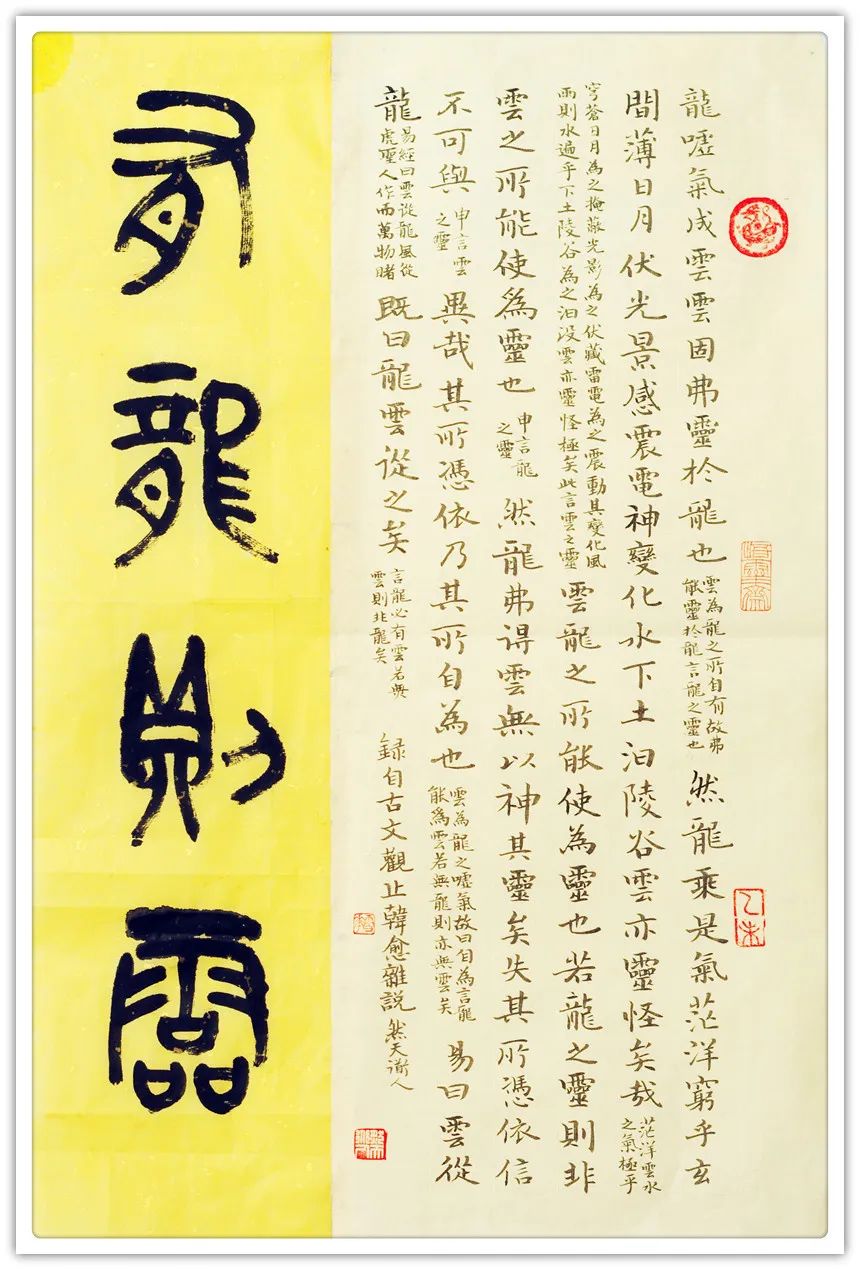 龍噓氣成雲雲固弗靈於龍也雲為龍之所自有故弗能靈於龍言龍之靈也然龍乘是氣茫洋窮乎玄
間薄日月伏光景感震電神變化水下土汩陵谷雲亦靈怪矣哉茫洋雲水之氣極乎
穹蒼日月為之掩蔽光影為之伏藏雷電為之震動其變化風雨則水遍乎下土陵谷為之汩没雲亦靈怪極矣此言雲之靈雲龍之所能使為靈也若龍之靈則非
雲之所能使為靈也申言龍之靈然龍弗得雲無以神其靈矣失其所憑依信
不可與申言雲之靈異哉其所憑依乃其所自為也雲為龍之噓氣故曰自為言龍能為雲若無龍則亦無雲矣易曰雲從
龍易經曰雲從龍風從虎聖人作而萬物睹既曰龍雲從之矣言龍必有雲若無雲則非龍矣
錄自古文觀止韓愈雜説
乙未
有龍則霝